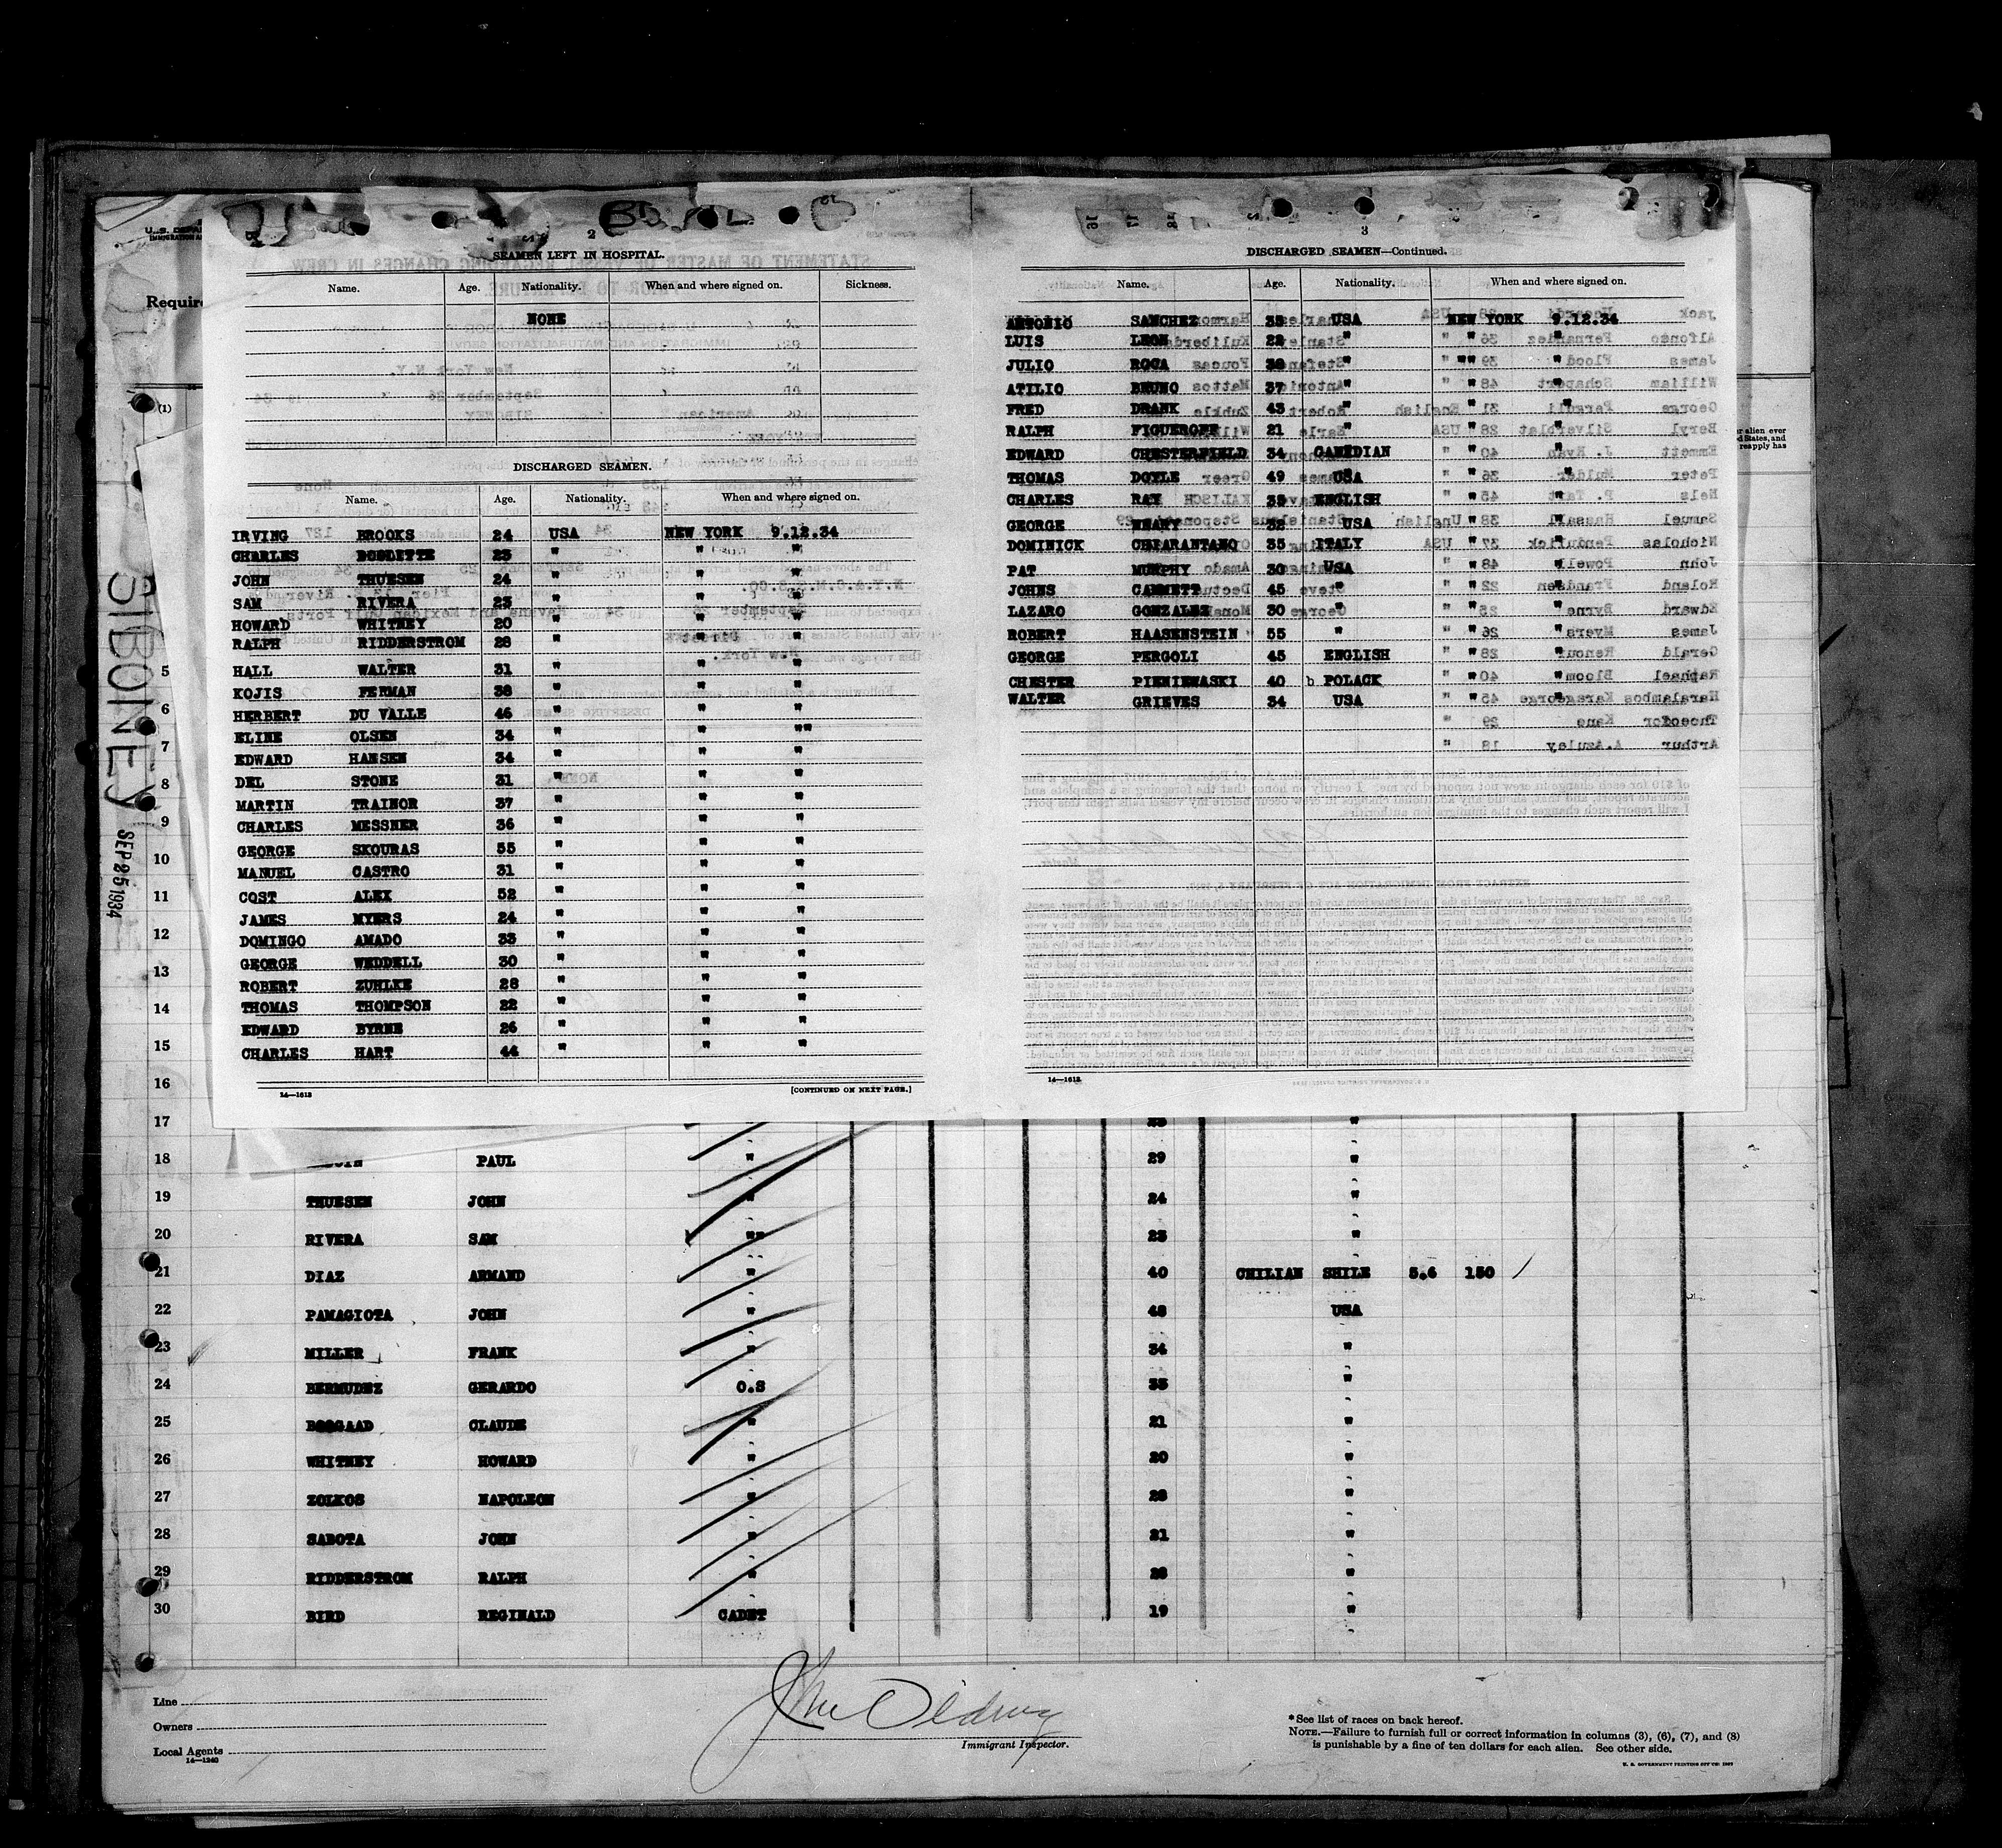 2
SEAMEN LEFT IN HOSPITAL.
Name. Age. Nationality. When and where signed on. Sickness.
NONE
DISCHARGED SEAMEN.
Name. Age. Nationality. When and where signed on.
IRVING BROOKS 24 USA NEW YORK 9.12.34
CHARLES 23 " " "
JOHN THUESEN 24 " " "
SAM RIVERA 23 " " "
HOWARD WHITNEY 20 " " "
RALPH RIDDERSTROM 28 " " "
HALL WALTER 31 " " "
KOJIS FERMAN 38 " " "
HERBERT DU VALLE 46 " " "
ELINE OLSEN 34 " " ""
EDWARD HANSEN 34 " " "
DEL STONE 31 " " "
MARTIN TRAINOR 37 " " "
CHARLES MESSNER 36 " " "
GEORGE SKOURAS 55 " " "
MANUEL CASTRO 31 " " "
COST ALEX 52 " " "
JAMES MYERS 24 " " "
DOMINGO AMADO 33 " " "
GEORGE WEDDELL 30 " " "
ROBERT ZUHLKE 28 " " "
THOMAS THOMPSON 22 " " "
EDWARD BYRNE 26 " " "
CHARLES HART 44 " " "
14—1613 [CONTINUED ON NEXT PAGE.]
3
DISCHARGED SEAMEN—Continued.
Name. Age. Nationality. When and where signed on.
ANTONIO SANCHEZ 35 USA NEW YORK 9.12.34
LUIS LEON 22 " " "
JULIO ROCA " " "
ATILIO BRUNO 37 " " "
FRED DRANK 43 " " "
RALPH 21 " " "
EDWARD CHESTERFIELD 34 CANEDIAN " "
THOMAS DOYLE 49 USA " "
CHARLES RAY 35 ENGLISH " "
GEORGE 32 USA " "
DOMINICK 35 ITALY " "
PAT MURPHY 30 USA " "
JOHNS CAMMETT 45 " " "
LAZARO GONZALES 30 " " "
ROBERT HAASENSTEIN 55 " " "
GEORGE PERGOLI 45 ENGLISH " "
CHESTER PIENIEMASKI 40 b POLACK " "
WALTER GRIEVES 34 USA " "
14—1613
Require
(1)
SIBONEY
SEP 25 1934
5
6
7
8
9
10
11
12
13
14
15
16
17 "
18 PAUL " 29 "
19 THUESEN JOHN " 24 "
20 RIVERA SAM "" 23 "
21 DIAZ ARMAND " 40 CHILIAN SHILE 5.6 150 /
22 PAMAGIOTA JOHN " 48 USA
23 MILLER FRANK " 34 "
24 BERMUDEZ GERARDO O.S 35 "
25 BOGGAAD CLAUDE " 21 "
26 WHITNEY HOWARD " 20 "
27 ZOLKOS NAPOLEON " 28 "
28 SABOTA JOHN " 21 "
29 RIDDERSTROM RALPH " 28 "
30 BIRD REGINALD CADET 19 "
Line
Owners
Local Agents
14—1240
Immigrant Inspector.
* See list of races on back hereof.
NOTE.—Failure to furnish full or correct information in columns (3), (6), (7), and (8)
is punishable by a fine of ten dollars for each alien. See other side.